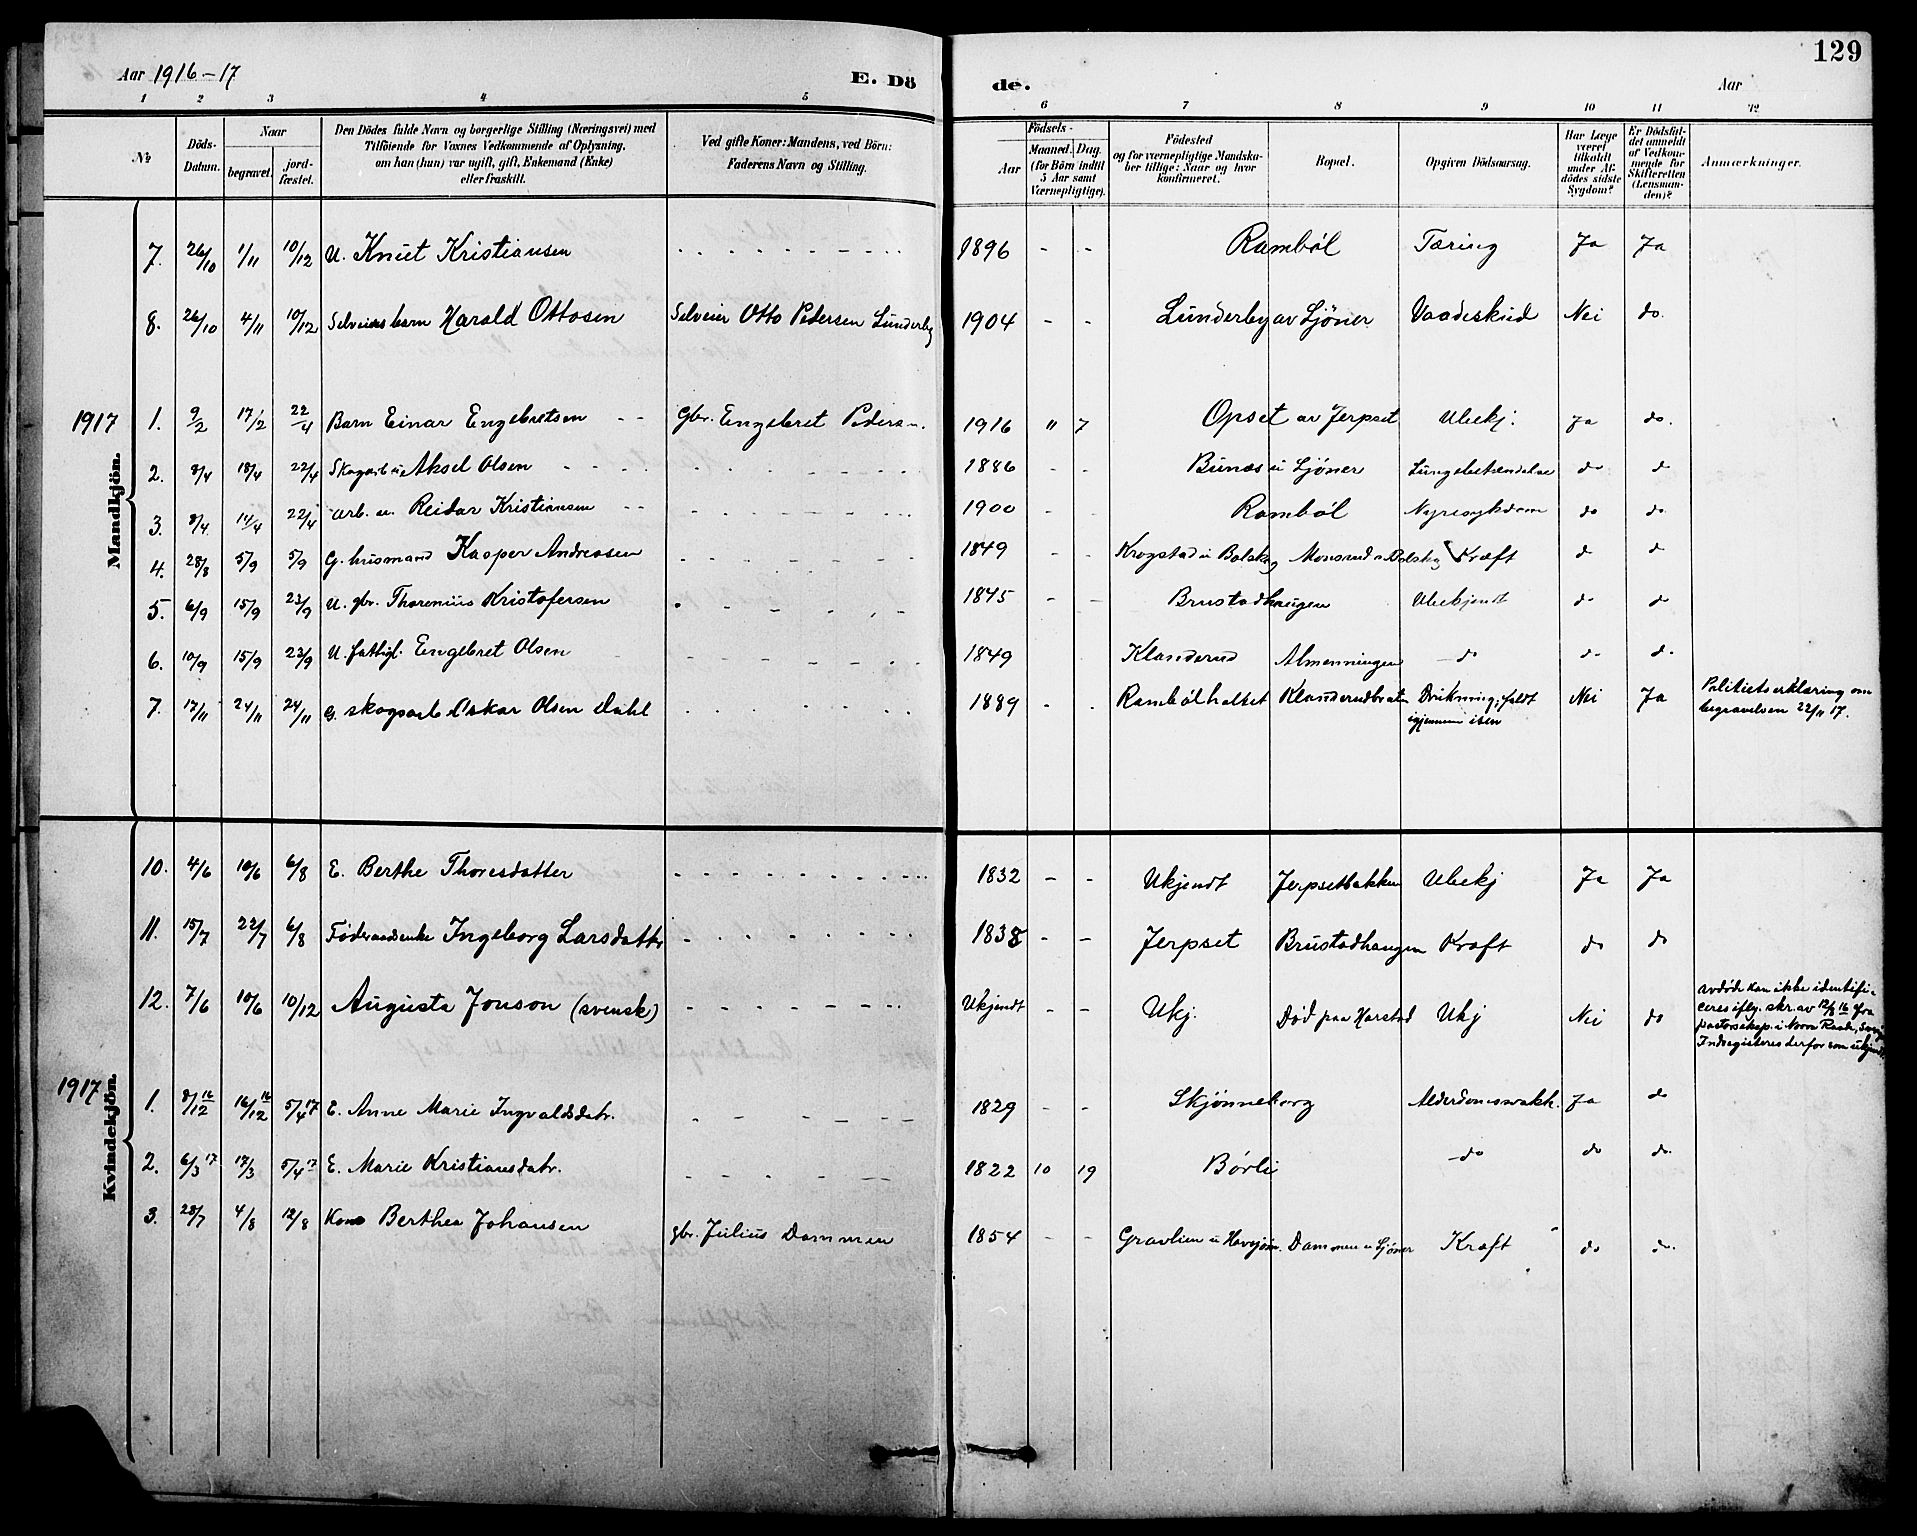 129
Aar 1916-17 E. Dö de. Aar
1 2 3 4 5 6 7 8 9 10 11 12
№ Döds-Datum. Naar begravet. jordfæstet. Den Dödes fulde Navn og borgerlige Stilling (Næringsvei) med Tilföiende for Voxnes Vedkommende af Oplysning, om han (hun) var ugift, gift, Enkemand (Enke) eller fraskilt. Ved gifte Koner: Mandens, ved Börn: Faderens Navn og Stilling. Födsels- Aar Maaned. Dag. (for Börn indtil 5 Aar samt Værnepligtige). Födested og for værnepligtige Mandskaber tillige: Naar og hvor konfirmeret. Bopæl. Opgiven Dödsaarsag. Har Læge været tilkaldt under Afdödes sidste Sygdom? Er Dödsfaldet anmeldt af Vedkommende for Skifteretten (Lensmanden)? Anmærkninger.
Mandkjön.
7. 26/10 1/11 10/12 U. Knut Kristiansen - - - 1896 - - Rambøl Tæring Ja Ja
8. 26/10 4/11 10/12 Selveiersbarn Harald Ottosen Selveier Otto Pedersen Lunderby 1904 - - Lunderby av Ljöner Vaadeskud Nei do.
1917 1. 9/2 17/2 22/4 Barn Einar Engebretsen - - Gbr. Engebret Peders-n. 1916 " 7 Opset av Jerpset Ubekj. Ja do.
2. 8/4 18/4 22/4 Skogarb. u. Aksel Olsen - - - 1886 - - Bunæs u Ljöner Lungebetændelse do do
3. 8/4 14/4 22/4 arb. u. Reidar Kristiansen - - 1900 - - Rambøl Nyresykdom do do
4. 28/8 5/9 5/9 G. husmand Kasper Andreasen - - - 1849 - - Krogstad u Bolsby Monsrud u Bolsby Kræft do do
5. 6/9 15/9 23/9 U. gbr. Thorenius Kristofersen - - - 1845 - - Brustadhaugen Ubekjendt do do
6. 10/9 15/9 23/9 U. fattigl. Engebret Olsen - - - 1849 Klanderud Almenningen - do do. do.
7. 17/11 24/11 24/11 G. skogsarb. Oskar Olsen Dahl - - - 1889 - - Rambølhaltet Klanderudbraten Drukning; faldt igjennem isen Nei Ja Politiets erklæring om begravelsen 22/11 17.
Kvindekjön.
10. 4/6 10/6 6/8 E. Berthe Thoresdatter - - - 1832 - - Ukjendt Jerpsetbakken Ubekj Ja Ja
11. 15/7 22/7 6/8 Føderaadsenke Ingeborg Larsdattr - - - 1838 - - Jerpset Brustadhaugen Kræft do do
12. 7/6 10/6 10/12 Augusta Jonson (svensk) - - - Ukjendt - - Ukj. Død paa Harstad Ukj Nei do avdøde kan ikke identificeres iflg. skr. av 12/8 16 fra pastorseksp. i Norra Raada, Sverige Indregisteres derfor som ukjendt.
1917 1. 8/12 16 16/12 16 5/4 17 E. Anne Marie Ingvaldsdatr. - - - 1829 - - Skjønneborg Alderdomssvakh. Ja do
2. 6/3 17 17/3 5/4 17 E. Marie Kristiansdatr. - - - 1822 10 19 Børli - do do do.
3. 28/7 4/8 12/8 Kone Berthea Johansen gbr. Julius Dammen 1854 - - Gravlien u Hovsjön. Dammen u Ljöner Kræft do do.